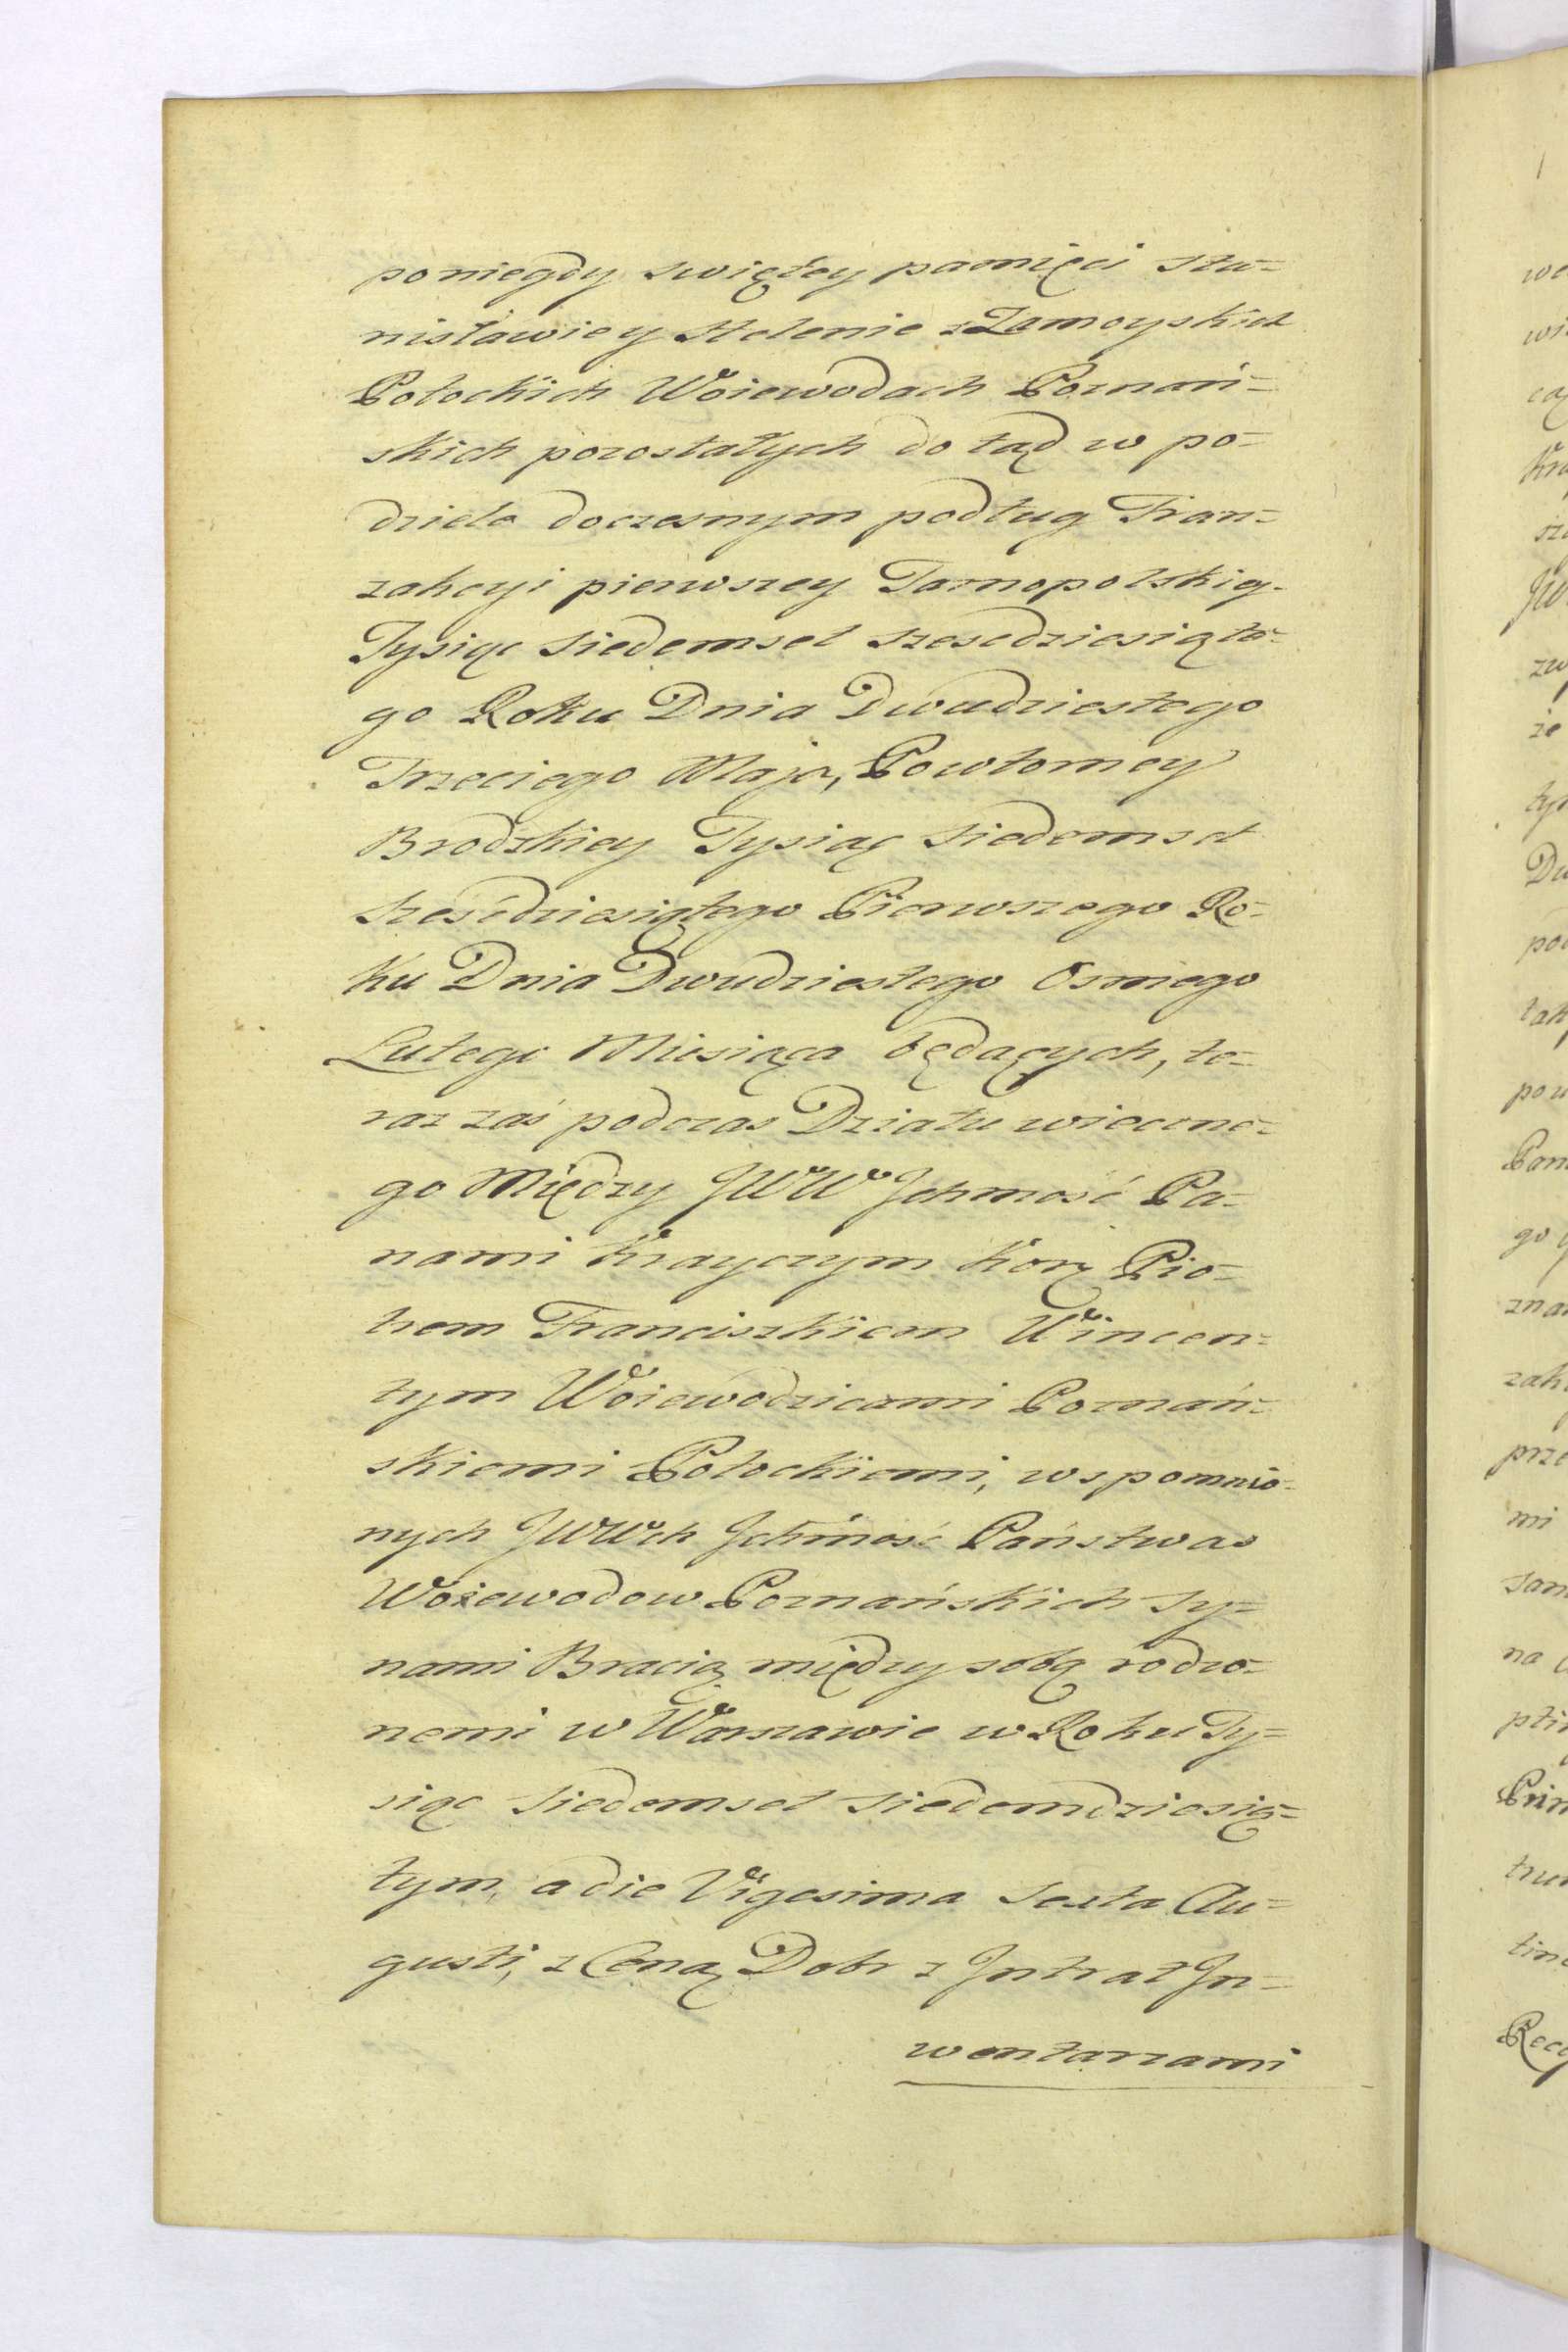 poniegdy swiętey pamięci Sta=
nisławie y Helenie z Zamoyskich
Potockich Woiewodach Poznań=
skich pozostałych do tąd w po=
dziele doczesnym podług Tran=
zakcyi pierwszey Tarnopolskiey
Tysiąc Siedemset szescdziesiąte=
go Roku Dnia Dwudziestego
Trzeciego Maja, Powtorney
Brodzkiey Tysiąc Siedemset
Sześćdziesiątego Pierwszego Ro=
ku Dnia Dwudziestego Osmego
Lutego Miesiąca będących, te=
raz zaś podczas Działu wieczne=
go Między JWW Jchmość Pa=
nami Krayczym Kor: Pio=
trem Franciszkiem Wincen=
tym Woiewodzicami Poznań=
skiemi Potockiemi, wspomnio=
nych JWWch Jchmość Państwa
Woiewodow Poznańskich Sy=
nami Bracią między sobą rodzo=
nemi w Warszawie w Roku Ty=
siąc Siedemset Siedemdziesią=
tym, a die Vigesima Sexta Au=
gusti, z Ceną Dobr z Jntrat Jn=
wentarzami